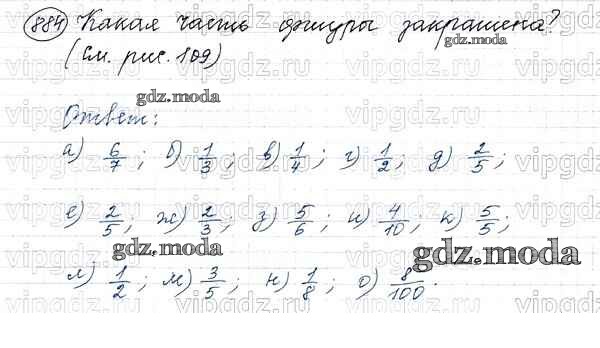 884 Какая часть фигуры закрашена?
(См. рис. 109)
gdz.moda
Ответ:
а) 6/7 ; б) 1/3 ; в) 1/4 ; г) 1/2 ; д) 2/5 ;
е) 2/5 ; ж) 2/3 ; з) 5/6 ; и) 4/10 ; к) 5/5 ;
gdz.moda gdz.moda
л) 1/2 ; м) 3/5 ; н) 1/8 ; о) 8/100 .